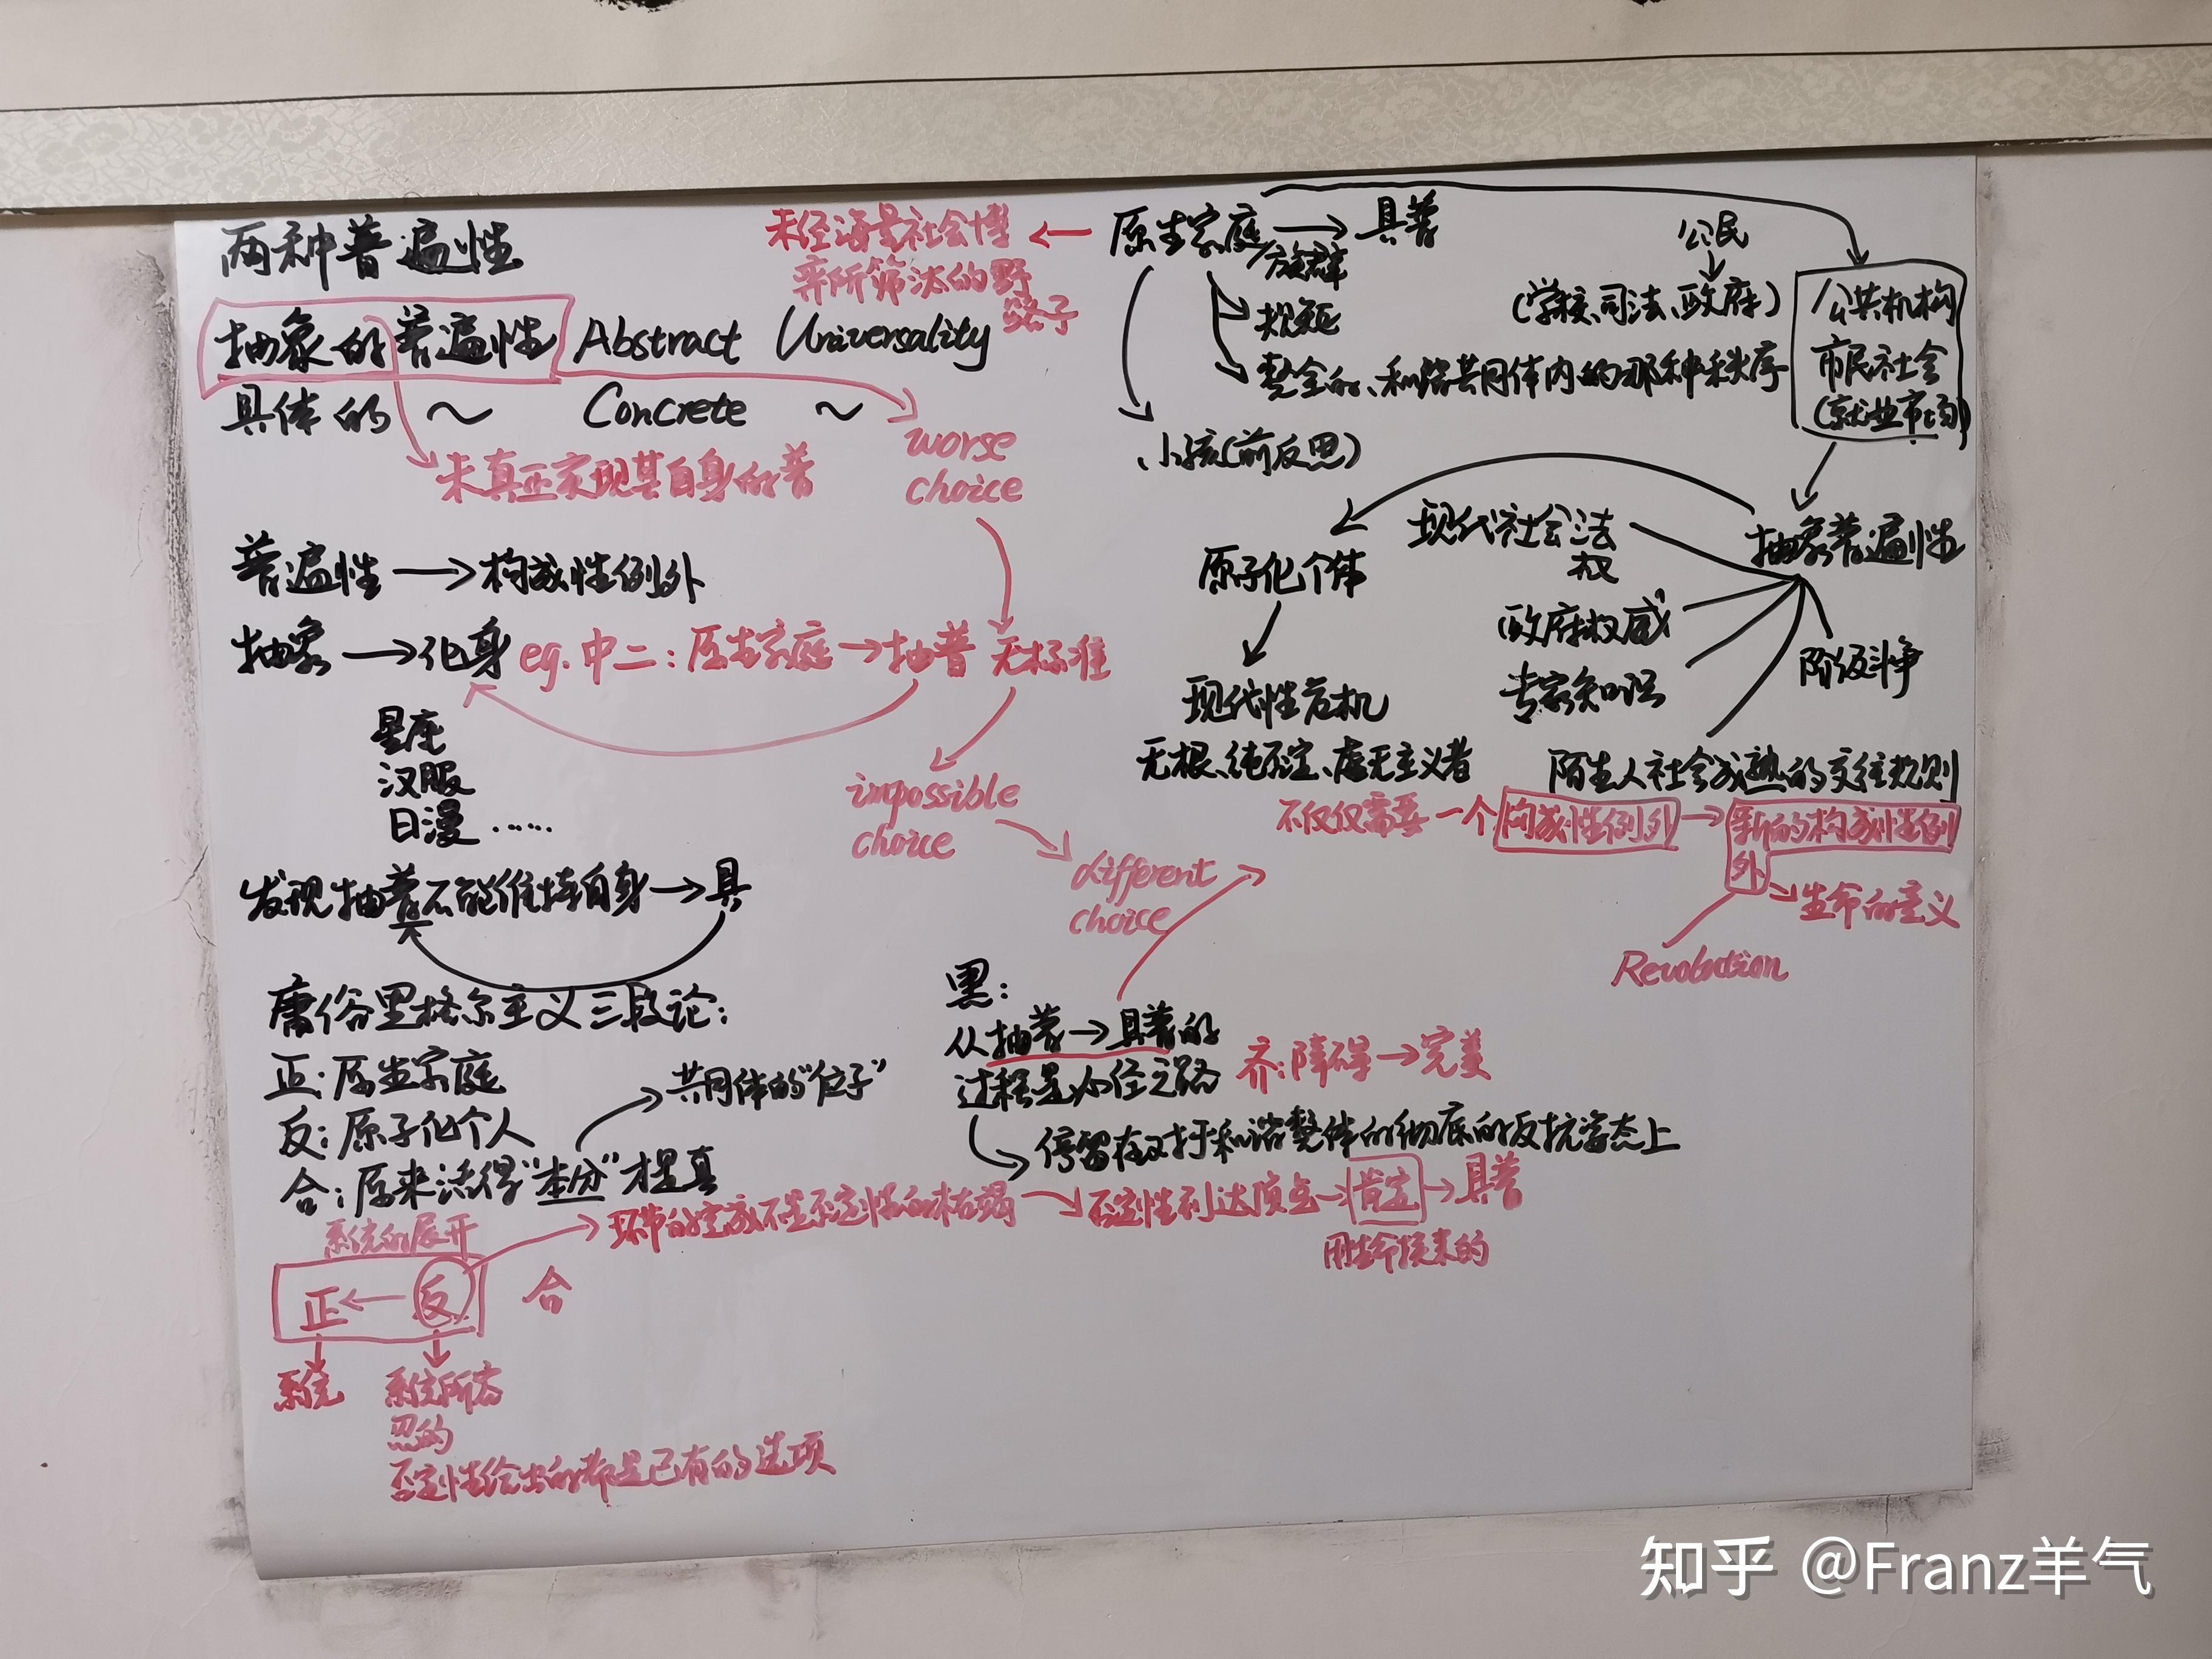 两种普遍性
抽象的普遍性 Abstract Universality
具体的 ～ Concrete ～
未真正实现其自身的普
worse
choice
普遍性→构成性例外
抽象→化身 eg.中二：原生家庭→抽普 无标准
星座
汉服
日漫……
impossible
choice
different
choice
发现抽普不能维持自身→具
庸俗黑格尔主义三段论：
正：原生家庭
反：原子化个人
合：原来活得“本分”才是真
共同体的“位子”
系统的展开
正←反 合
系统
系统所容
忍的
否定性给出的都是已有的选项
环节的空减不是否定性的枯竭→否定性到达顶点→肯定→具普
用生命换来的
黑：
从抽普→具普的
过程是必经之路
齐：障碍→完美
停留在对于和谐整体的彻底的反抗姿态上
未经海量社会博
弈所筛汰的野
路子
原生家庭→具普
/族群
规矩
整全的、和谐共同体内的那种秩序
小孩(前反思)
公民
(学校、司法、政府)
公共机构
市民社会
(就业市场)
抽象普遍性
现代社会法
权
政府权威
专家知识
阶级斗争
陌生人社会成熟的交往规则
原子化个体
现代性危机
无根、纯否定、虚无主义者
不仅仅需要一个构成性例外→新的构成性例
外
生命的意义
Revolution
知乎 @Franz羊气